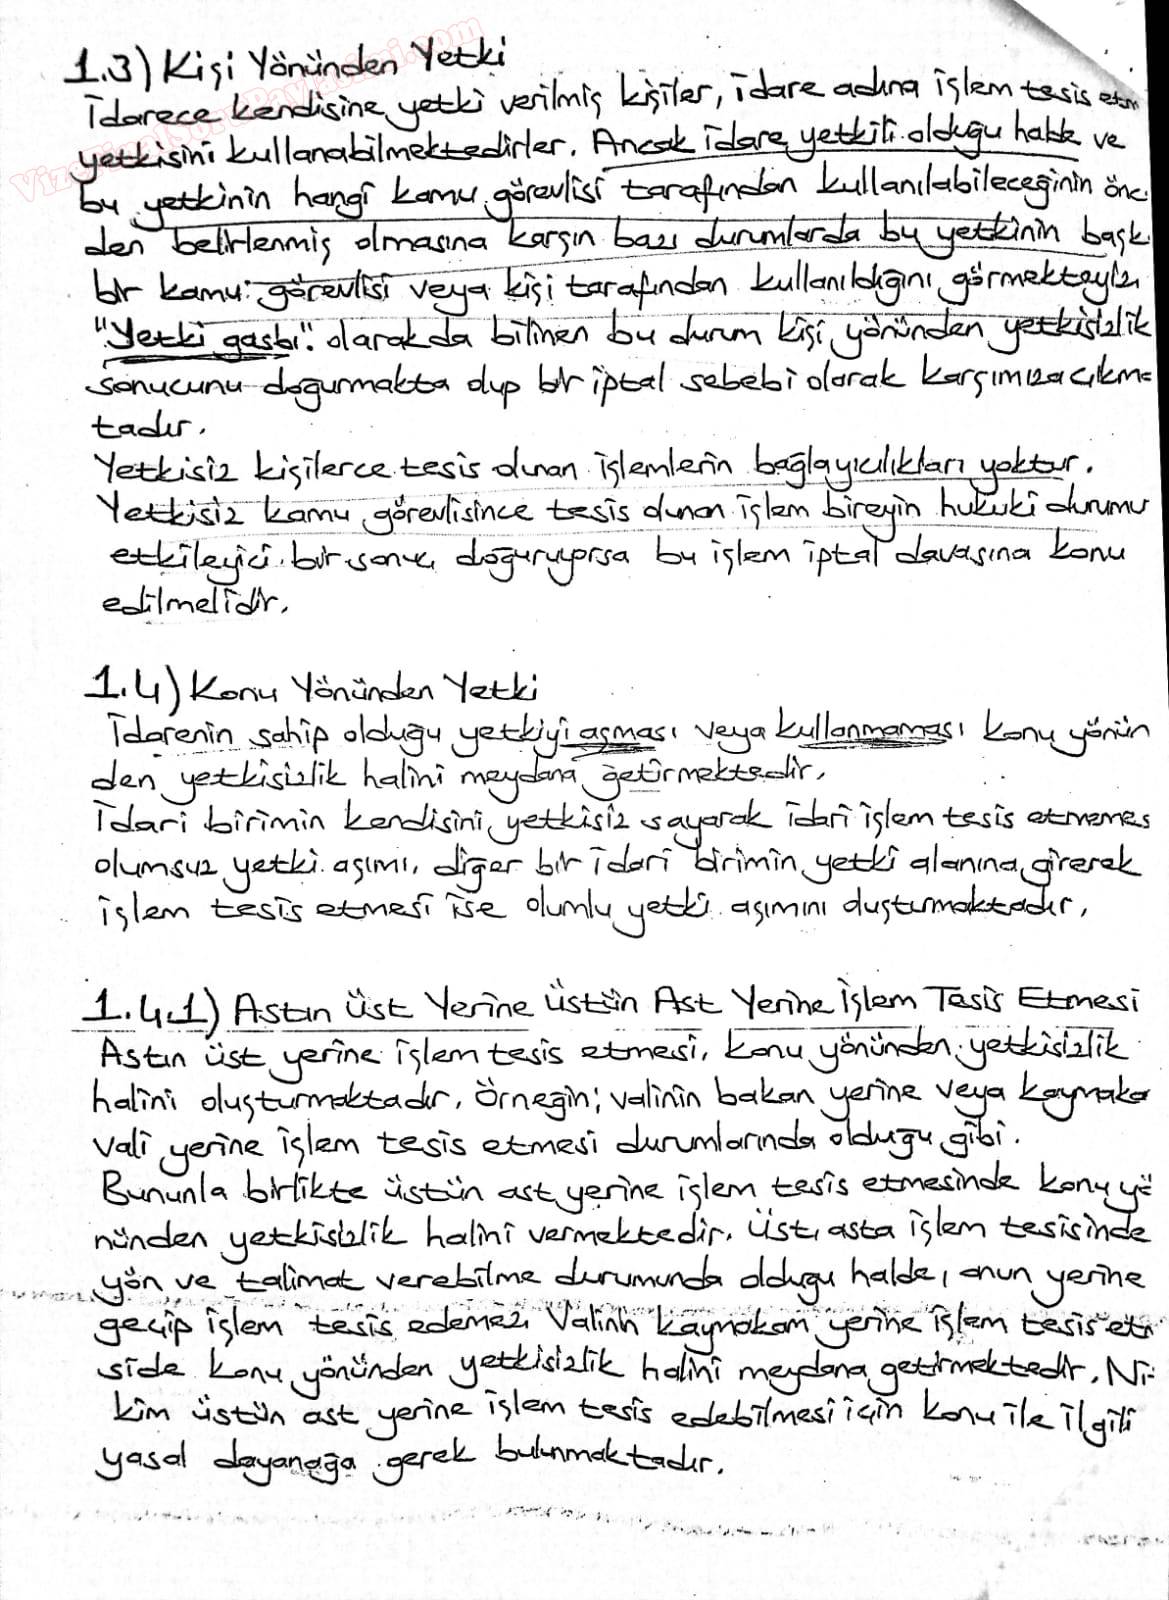 VizeFinalSoruPaylasimi.com
1.3) Kişi Yönünden Yetki
İdarece kendisine yetki verilmiş kişiler, idare adına işlem tesis etm
yetkisini kullanabilmektedirler. Ancak idare yetkili olduğu halde ve
bu yetkinin hangi kamu görevlisi tarafından kullanılabileceğinin önc
den belirlenmiş olmasına karşın bazı durumlarda bu yetkinin başk
bir kamu görevlisi veya kişi tarafından kullanıldığını görmekteyiz
"Yetki gasbı" olarakda bilinen bu durum kişi yönünden yetkisizlik
sonucunu doğurmakta olup bir iptal sebebi olarak karşımıza çıkma
tadır.
Yetkisiz kişilerce tesis olunan işlemlerin bağlayıcılıkları yoktur.
Yetkisiz kamu görevlisince tesis olunan işlem bireyin hukuki durumu
etkileyici bir sonuç doğuruyorsa bu işlem iptal davasına konu
edilmelidir.
1.4) Konu Yönünden Yetki
İdarenin sahip olduğu yetkiyi aşması veya kullanmaması konu yönün
den yetkisizlik halini meydana getirmektedir.
İdari birimin kendisini yetkisiz sayarak idari işlem tesis etmemes
olumsuz yetki aşımı, diğer bir idari birimin yetki alanına girerek
işlem tesis etmesi ise olumlu yetki aşımını oluşturmaktadır.
1.4.1) Astın Üst Yerine Üstün Ast Yerine İşlem Tesis Etmesi
Astın üst yerine işlem tesis etmesi, konu yönünden yetkisizlik
halini oluşturmaktadır. Örneğin; valinin bakan yerine veya kaymaka
vali yerine işlem tesis etmesi durumlarında olduğu gibi.
Bununla birlikte üstün ast yerine işlem tesis etmesinde konu yö
nünden yetkisizlik halini vermektedir. Üst, asta işlem tesisinde
yön ve talimat verebilme durumunda olduğu halde, onun yerine
geçip işlem tesis edemez. Valinin kaymakam yerine işlem tesis etm
side konu yönünden yetkisizlik halini meydana getirmektedir. Ni-
kim üstün ast yerine işlem tesis edebilmesi için konu ile ilgili
yasal dayanağa gerek bulunmaktadır.